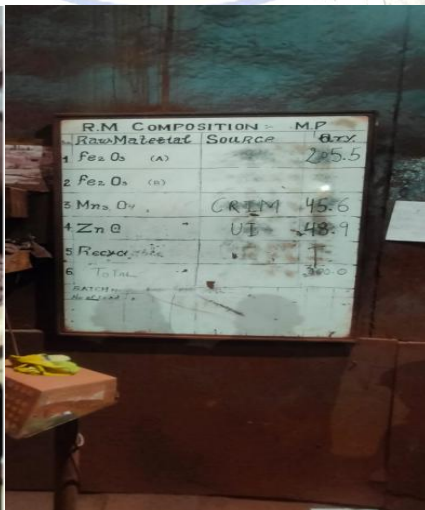 R.M COMPOSITION :- M.P
Raw Material Source Qty.
1 Fe2 O3 (A) 205.5
2 Fe2 O3 (B)
3 Mn3 O4 CRIM 45.6
4 Zn O UI 48.9
5
6 TOTAL 300.0
BATCH
No of Load